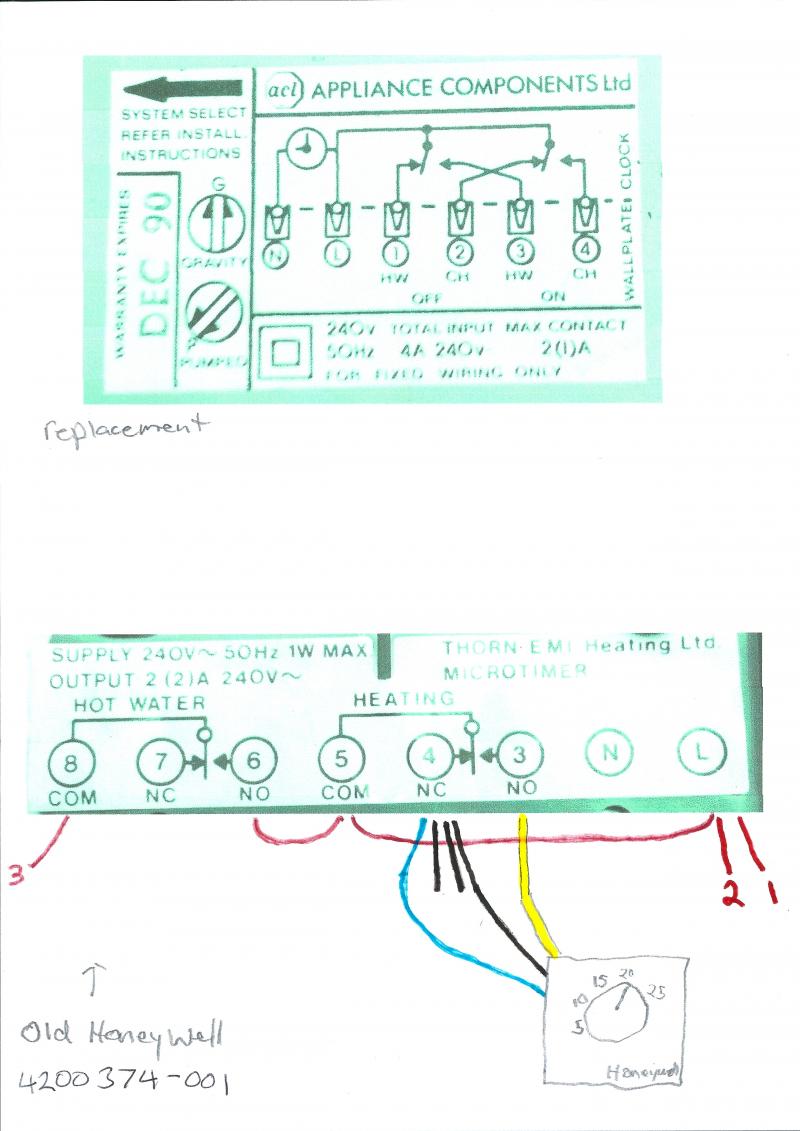 acl APPLIANCE COMPONENTS Ltd
SYSTEM SELECT
REFER INSTALL.
INSTRUCTIONS
WARRANTY EXPIRES
DEC 90
G
GRAVITY
P
PUMPED
N L 1 2 3 4
HW CH HW CH
OFF ON
WALLPLATE CLOCK
240V TOTAL INPUT MAX CONTACT
50Hz 4A 240V 2(1)A
FOR FIXED WIRING ONLY
replacement
SUPPLY 240V~ 50Hz 1W MAX
OUTPUT 2 (2)A 240V~
THORN EMI Heating Ltd.
MICROTIMER
HOT WATER HEATING
8 7 6 5 4 3 N L
COM NC NO COM NC NO
3
2 1
5 10 15 20 25
Honeywell
↑
Old Honeywell
4200374-001